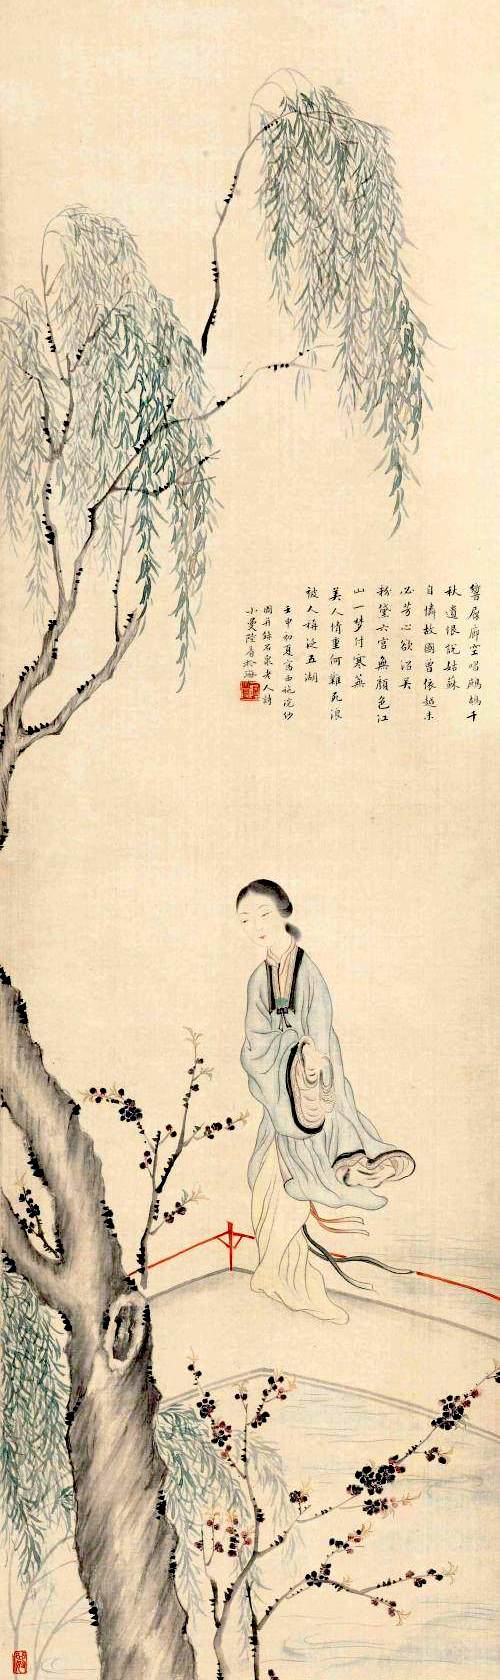 響屧廊空唱鷓鴣千
秋遺恨說姑蘇
自憐故國曾依越未
必芳心欲沼吳
粉黛六宮無顏色江
山一夢付寒蕪
美人情重何難死浪
被人稱泛五湖
壬申初夏寫西施浣紗
圖并錄石泉老人詩
小曼陸眉於海